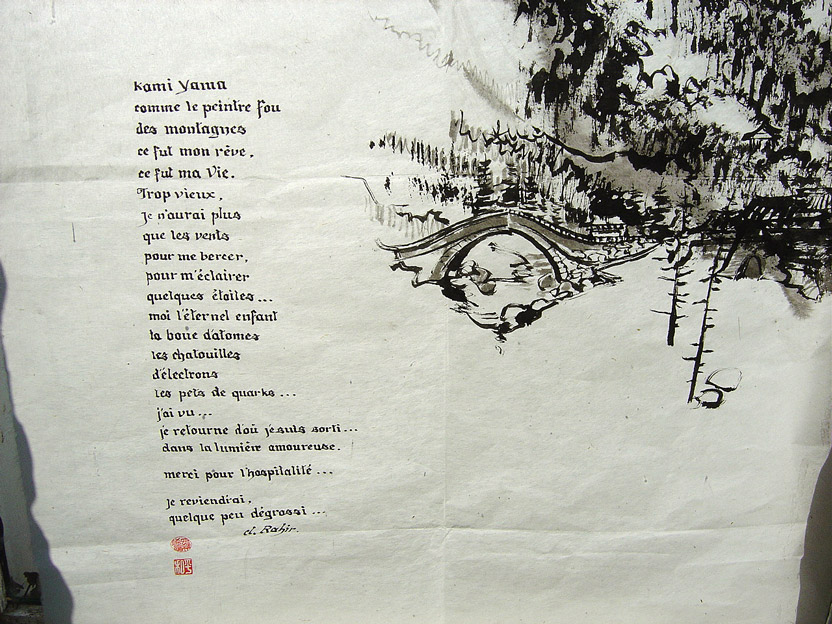 Kami Yama
comme le peintre fou
des montagnes
ce fut mon rêve,
ce fut ma Vie.
Trop vieux,
je n'aurai plus
que les vents
pour me bercer,
pour m'éclairer
quelques étoiles...
moi l'éternel enfant
la boue d'atomes
les chatouilles
d'électrons
les pets de quarks...
j'ai vu...
je retourne d'où je suis sorti...
dans la lumière amoureuse.
merci pour l'hospitalité...
je reviendrai,
quelque peu dégrossi...
cl. Rahir.